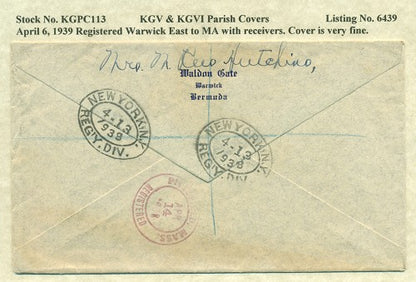 Stock No. KGPC113 KGV & KGVI Parish Covers Listing No. 6439
April 6, 1939 Registered Warwick East to MA with receivers. Cover is very fine.
Mrs. M.
Waldon Gate
Warwick
Bermuda
NEW YORK, N.Y.
4-13
1938
REG'Y. DIV.
NEW YORK, N.Y.
4-13
1938
REG'Y. DIV.
MASS.
APR
14
REGISTERED